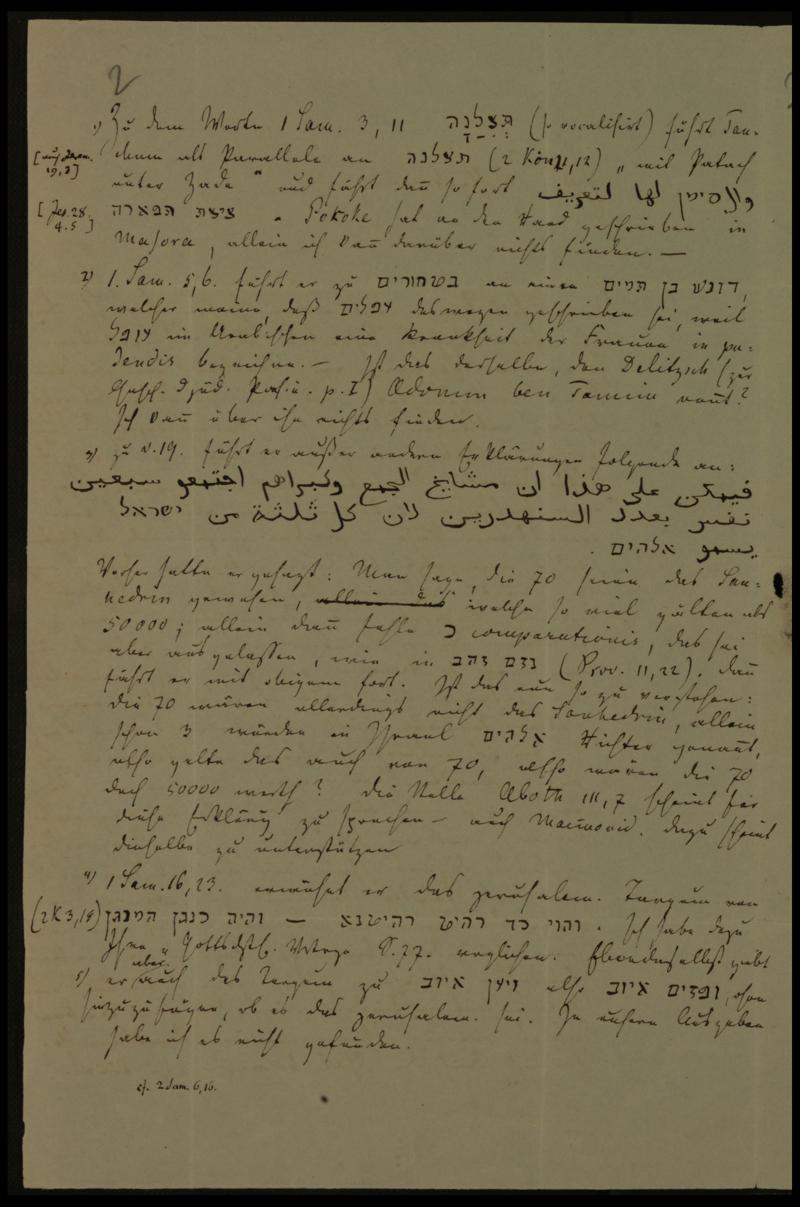 2
1) Zu dem Worte 1 Sam. 3, 11 תְּצִלֶּנָה (so vocalisirt) führt Tan-
[auch Jerem. 19,3] chum als Parallele an תצלנה (2 Kön. 21,12) „mit Patach
unter Zade“ und führt dann so fort والסימן لها لتعريف
[Jes. 28, 4.5] ציצת תפארה. Pokoke hat an den Rand geschrieben in
Masora, allein ich kann darüber nichts finden. —
2) 1. Sam. 5, 6. führt er zu בטחורים an einen דונש בן תמים,
welcher meine, daß עפלים deswegen geschrieben sei, weil
עפל im Arabischen eine Krankheit der Frauen in pu-
dendis bezeichne. — Ist dies derselbe, den Delitzsch (zur
Gesch. d. jüd. Poesie. p. I) Adonim ben Tamim nennt?
Ich kann über ihn nichts finden.
3) zu v. 19. führt er außer andern Erklärungen folgende an:
فيمكن على هذا ان مشايخ الجمع وكبراهم اجتمعو سبعين
نفس بعدد السنهدرين لان كل ثلثة من ישראל
يسمو אלהים .
Vorher hatte er gesagt: Man sage, die 70 seien das San-
hedrin gewesen, allein das welche so viel gälten als
50000; allein dann fehle כ comparationis, das sei
aber ausgelassen, wie in נזם זהב (Prov. 11,22). Dann
führt er mit obigem fort. Ist das nun so zu verstehen:
die 70 wären allerdings nicht das Sanhedrin, allein
schon 3 würden in Israel אלהים Richter genannt,
also gelte das auch von 70, also wären die 70
doch 50000 werth? Die Stelle Aboth III, 7 scheint für
diese Erklärung zu sprechen — auch Maimonid. dazu scheint
dieselbe zu unterstützen
4) 1 Sam. 16, 23. erwähnt er das jerusalem. Targum von
(2K 3,15) והוי כד רהיט רהיטנא — והיה כנגן המנגן. Ich habe dazu
Ihre „Gottesdstl. Vorträge S. 77. verglichen. Ebendaselbst giebt
5) er aber auch das Targum zu ויען איוב also ופדים איוב, ohne
hinzuzufügen, ob es das jerusalem. sei. In unsern Ausgaben
habe ich es nicht gefunden.
cf. 2 Sam. 6,16.